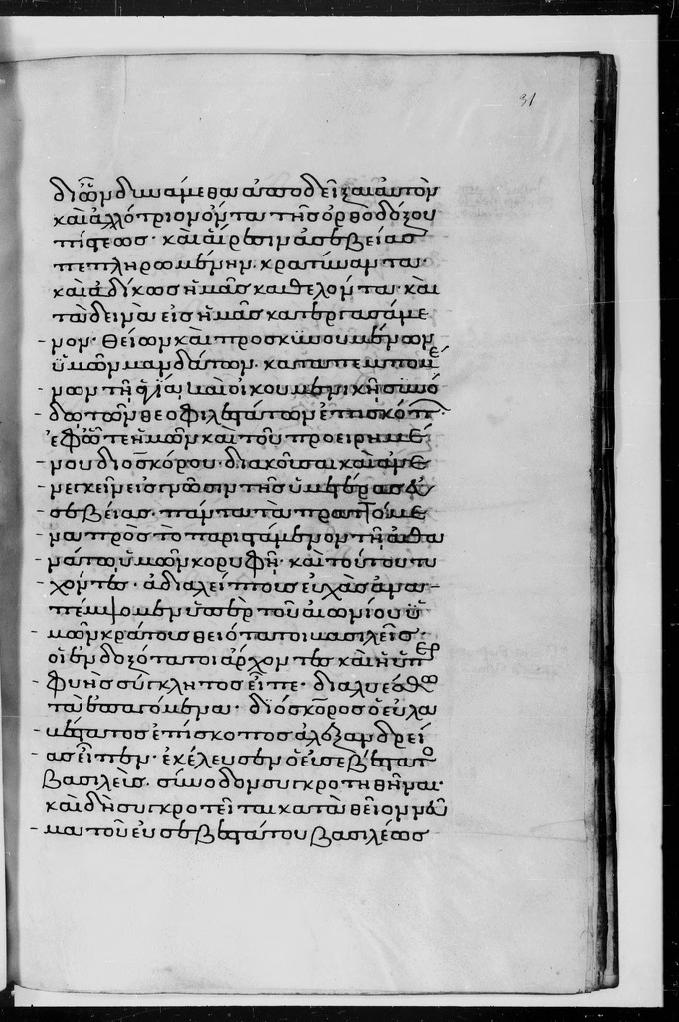 31
δι' ὧν δυνάμεθα ἀποδεῖξαι αὐτὸν
καὶ ἀλλότριον ὄντα τῆς ὀρθοδόξου
πίστεως· καὶ αἵρεσιν ἀσεβείας
πεπληρωμένην κρατύναντα·
καὶ ἀδίκως ἡμᾶς καθελόντα· καὶ
τὰ δεινὰ εἰς ἡμᾶς κατεργασάμε
νον· θείων καὶ προσκυνουμένων
ὑμῶν μανδάτων. καταπεμπομέ
νων τῇ ἁγίᾳ καὶ οἰκουμενικῇ συνό
δῳ τῶν θεοφιλεστάτων ἐπισκόπ
ἐφ' ᾧ τε ἡμῶν καὶ τοῦ προειρημέ
νου διοσκόρου· διακοῦσαι καὶ ἀνε
νεγκεῖν εἰς γνῶσιν τῆς ὑμετέρας εὐ
σεβείας· πάντα τὰ πραττόμε
να πρὸς τὸ παριστάμενον τῇ ἀθα
νάτῳ ὑμῶν κορυφῇ· καὶ τούτου τυ
χόντες· ἀδιαλείπτους εὐχὰς ἀνα
πέμψομεν ὑπὲρ τοῦ αἰωνίου ὑ
μῶν κράτους θειότατοι βασιλεῖς·
οἱ ἐνδοξότατοι ἄρχοντες καὶ ἡ ὑπερ
φυὴς σύγκλητος εἶπε· διαλυέσθω
τὰ ἐπαγόμενα· διόσκορος ὁ εὐλα
βέστατος ἐπίσκοπος ἀλεξανδρεί
ας εἶπεν· ἐκέλευσεν ὁ εὐσεβέστατο
βασιλεὺς. σύνοδον συγκροτηθῆναι·
καὶ δὴ συγκροτεῖται κατὰ θεῖον νεῦ
μα τοῦ εὐσεβεστάτου βασιλέως